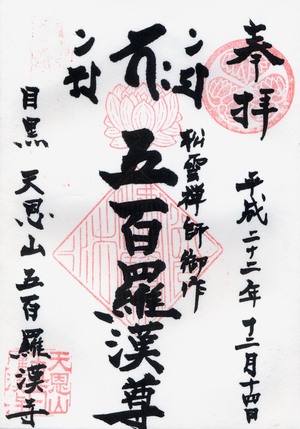 奉拝
平成二十二年十二月十四日
松雲禅師御作
五百羅漢尊
目黒 天恩山五百羅漢寺
天恩山